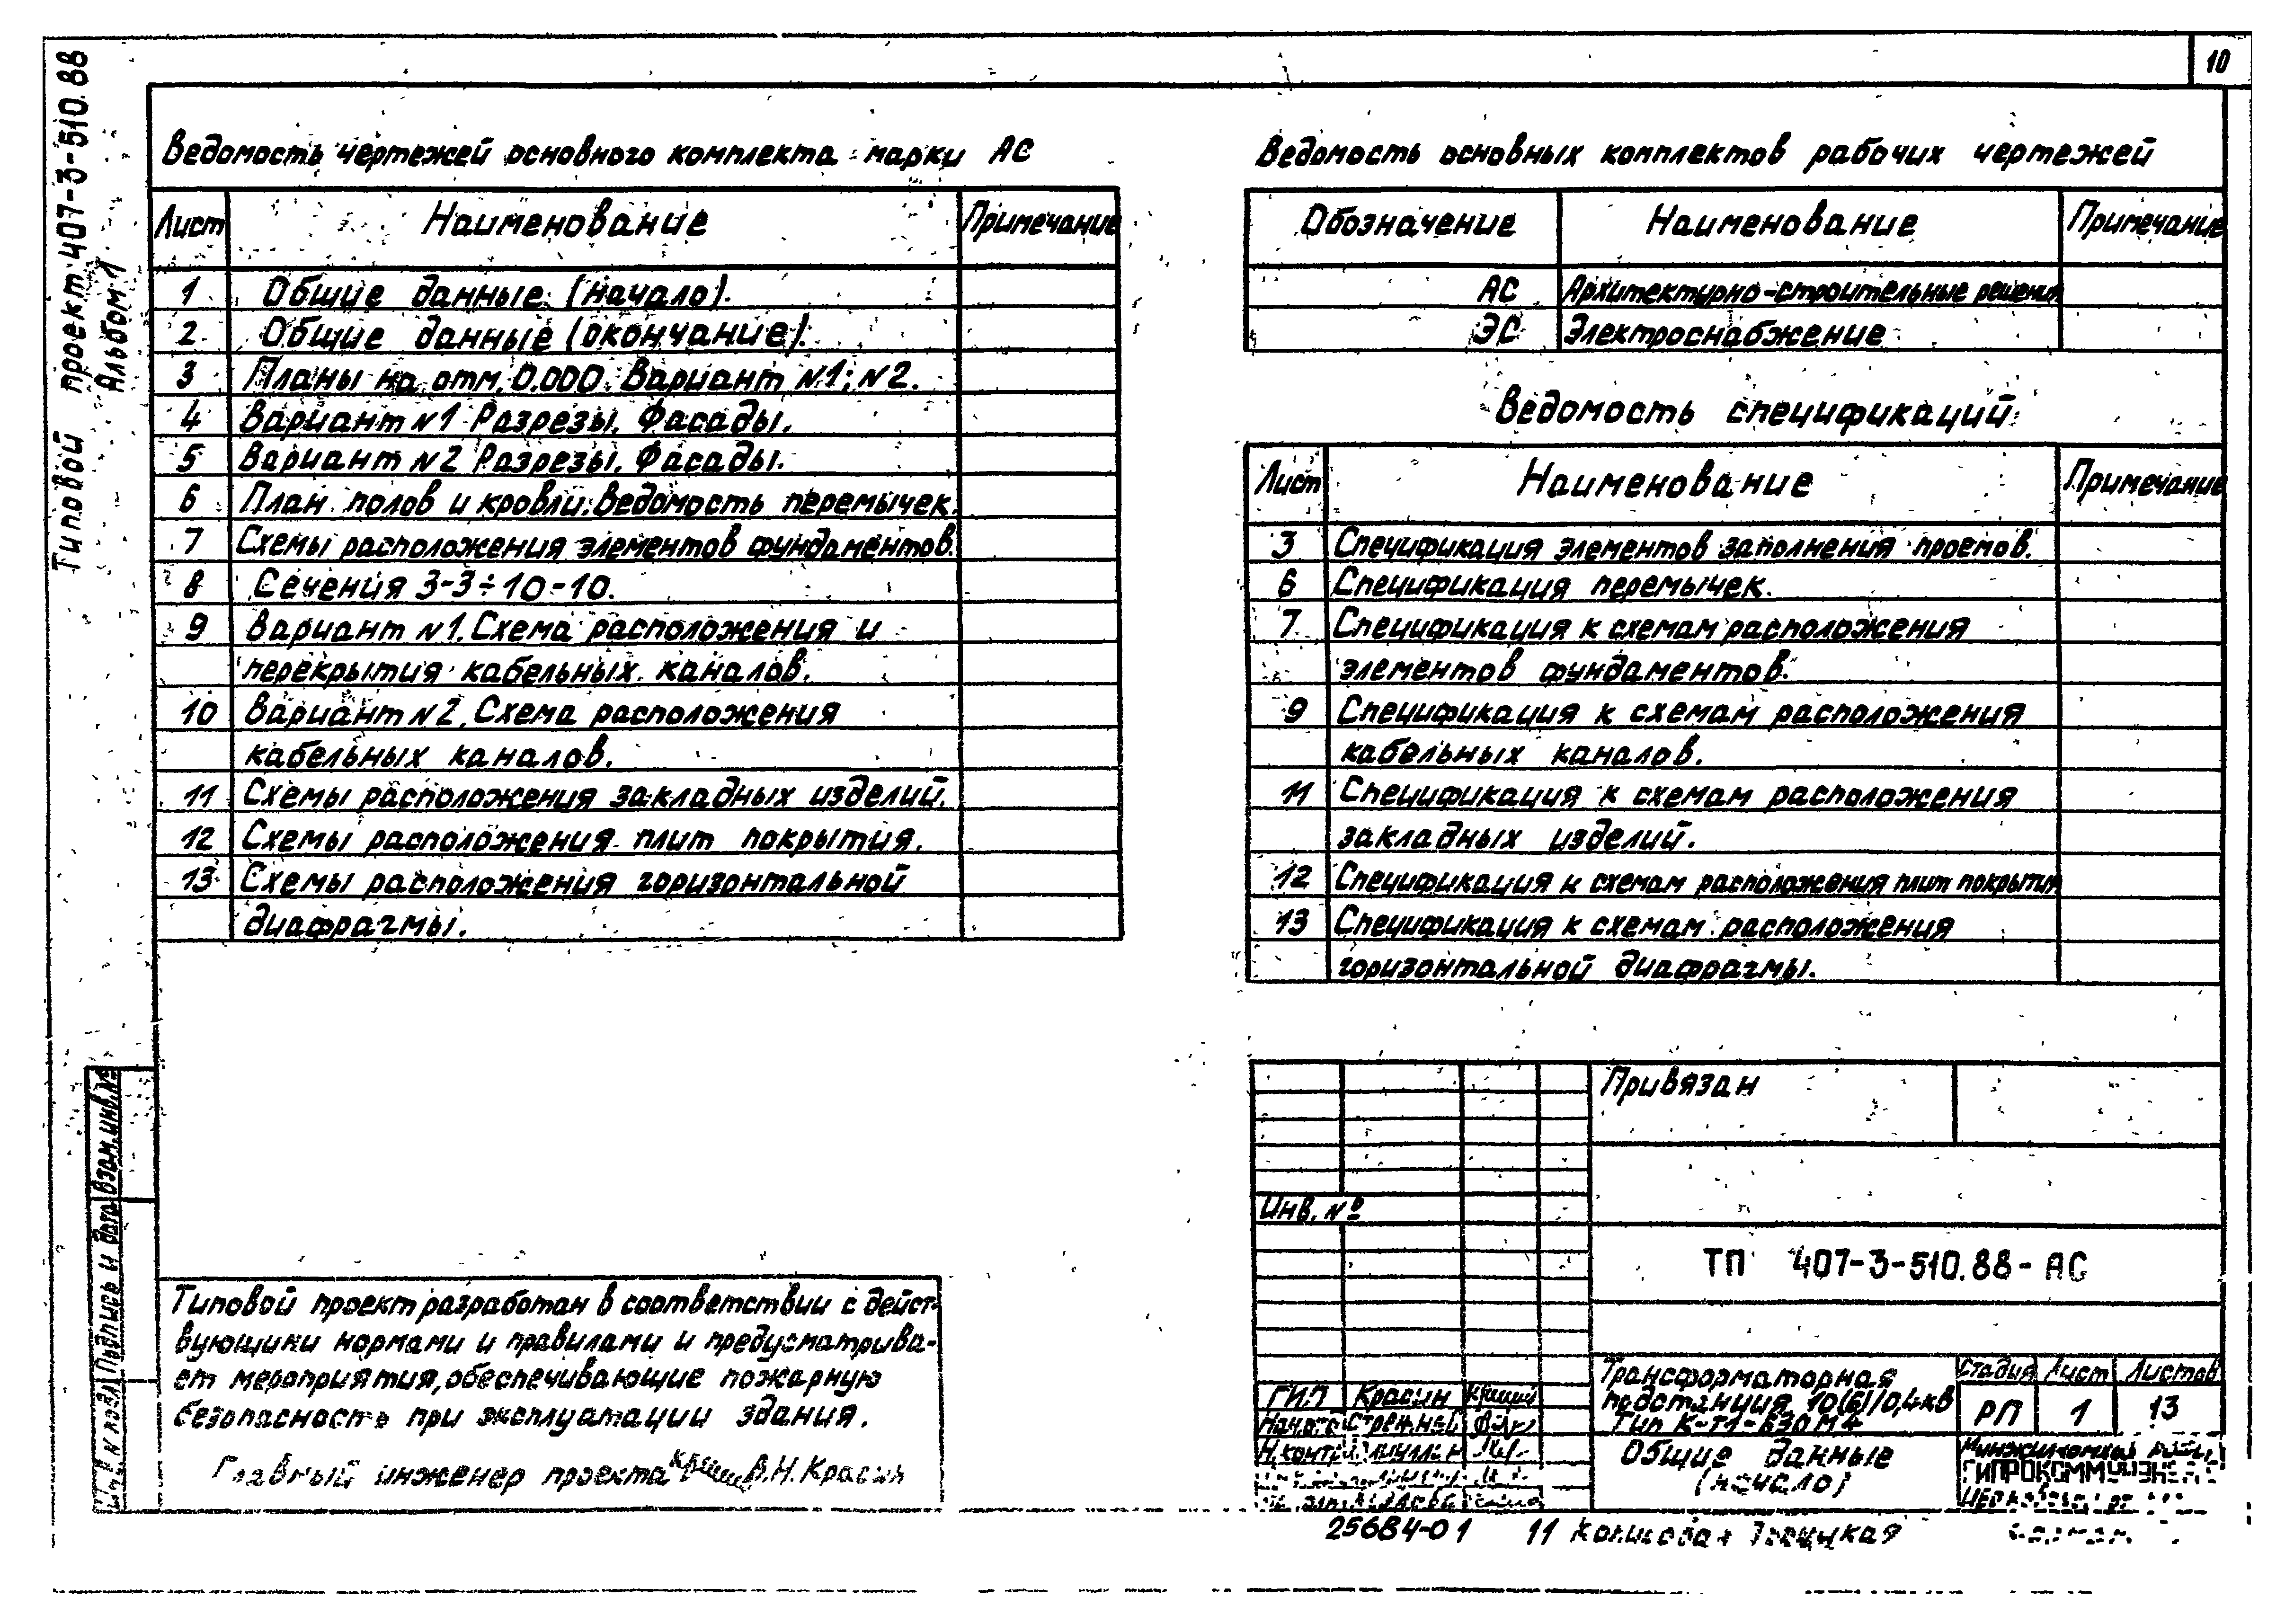 10
Типовой проект 407-3-510.88
Альбом 1
Ведомость чертежей основного комплекта марки АС
Лист Наименование Примечание
1 Общие данные (начало).
2 Общие данные (окончание).
3 Планы на отм. 0.000. Вариант N1; N2.
4 Вариант N1 Разрезы. Фасады.
5 Вариант N2 Разрезы. Фасады.
6 План полов и кровли. Ведомость перемычек.
7 Схемы расположения элементов фундаментов.
8 Сечения 3-3÷10-10.
9 Вариант N1. Схема расположения и
перекрытия кабельных каналов.
10 Вариант N2. Схема расположения
кабельных каналов.
11 Схемы расположения закладных изделий.
12 Схемы расположения плит покрытия.
13 Схемы расположения горизонтальной
диафрагмы.
Ведомость основных комплектов рабочих чертежей
Обозначение Наименование Примечание
АС Архитектурно-строительные решения
ЭС Электроснабжение
Ведомость спецификаций
Лист Наименование Примечание
3 Спецификация элементов заполнения проемов.
6 Спецификация перемычек.
7 Спецификация к схемам расположения
элементов фундаментов.
9 Спецификация к схемам расположения
кабельных каналов.
11 Спецификация к схемам расположения
закладных изделий.
12 Спецификация к схемам расположения плит покрытия
13 Спецификация к схемам расположения
горизонтальной диафрагмы.
Взам. инв. №
Подпись и дата
Инв. N подл
Типовой проект разработан в соответствии с дейст-
вующими нормами и правилами и предусматрива-
ет мероприятия, обеспечивающие пожарную
безопасность при эксплуатации здания.
Главный инженер проекта В.Н. Красин
Привязан
Инв. №
ТП 407-3-510.88-АС
ГИП Красин
Нач.отд
Н.контр
Трансформаторная
подстанция 10(6)/0,4кВ
Тип К-Т1-630М4
Стадия Лист Листов
РП 1 13
Общие данные
(начало)
25684-01 11